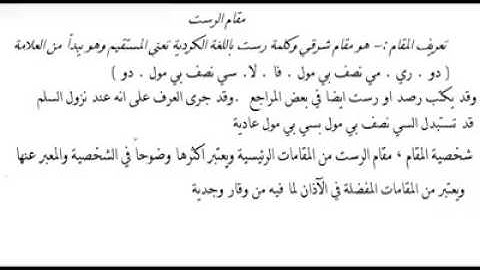 مقام الرست
تعريف المقام :- هو مقام شرقي وكلمة رست باللغة الكردية تعني المستقيم وهو يبدأ من العلامة
( دو . ري . مي نصف بي مول . فا . لا . سي نصف بي مول . دو )
وقد يكتب رصد او رست ايضا في بعض المراجع . وقد جرى العرف على انه عند نزول السلم
قد تستبدل السي نصف بي مول بسي بي مول عادية
شخصية المقام , مقام الرست من المقامات الرئيسية ويعتبر اكثرها وضوحاً في الشخصية والمعبر عنها
ويعتبر من المقامات المفضلة في الآذان لما فيه من وقار وجدية